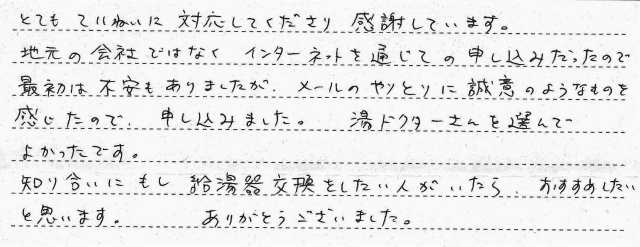 とても ていねいに 対応してくださり 感謝しています。
地元の会社ではなく インターネットを通じての申し込みだったので
最初は不安もありましたが、メールのやりとりに誠意のようなものを
感じたので、申し込みました。 湯ドクターさんを選んで
よかったです。
知り合いにもし 給湯器交換をしたい人がいたら、おすすめしたい
と思います。 ありがとうございました。